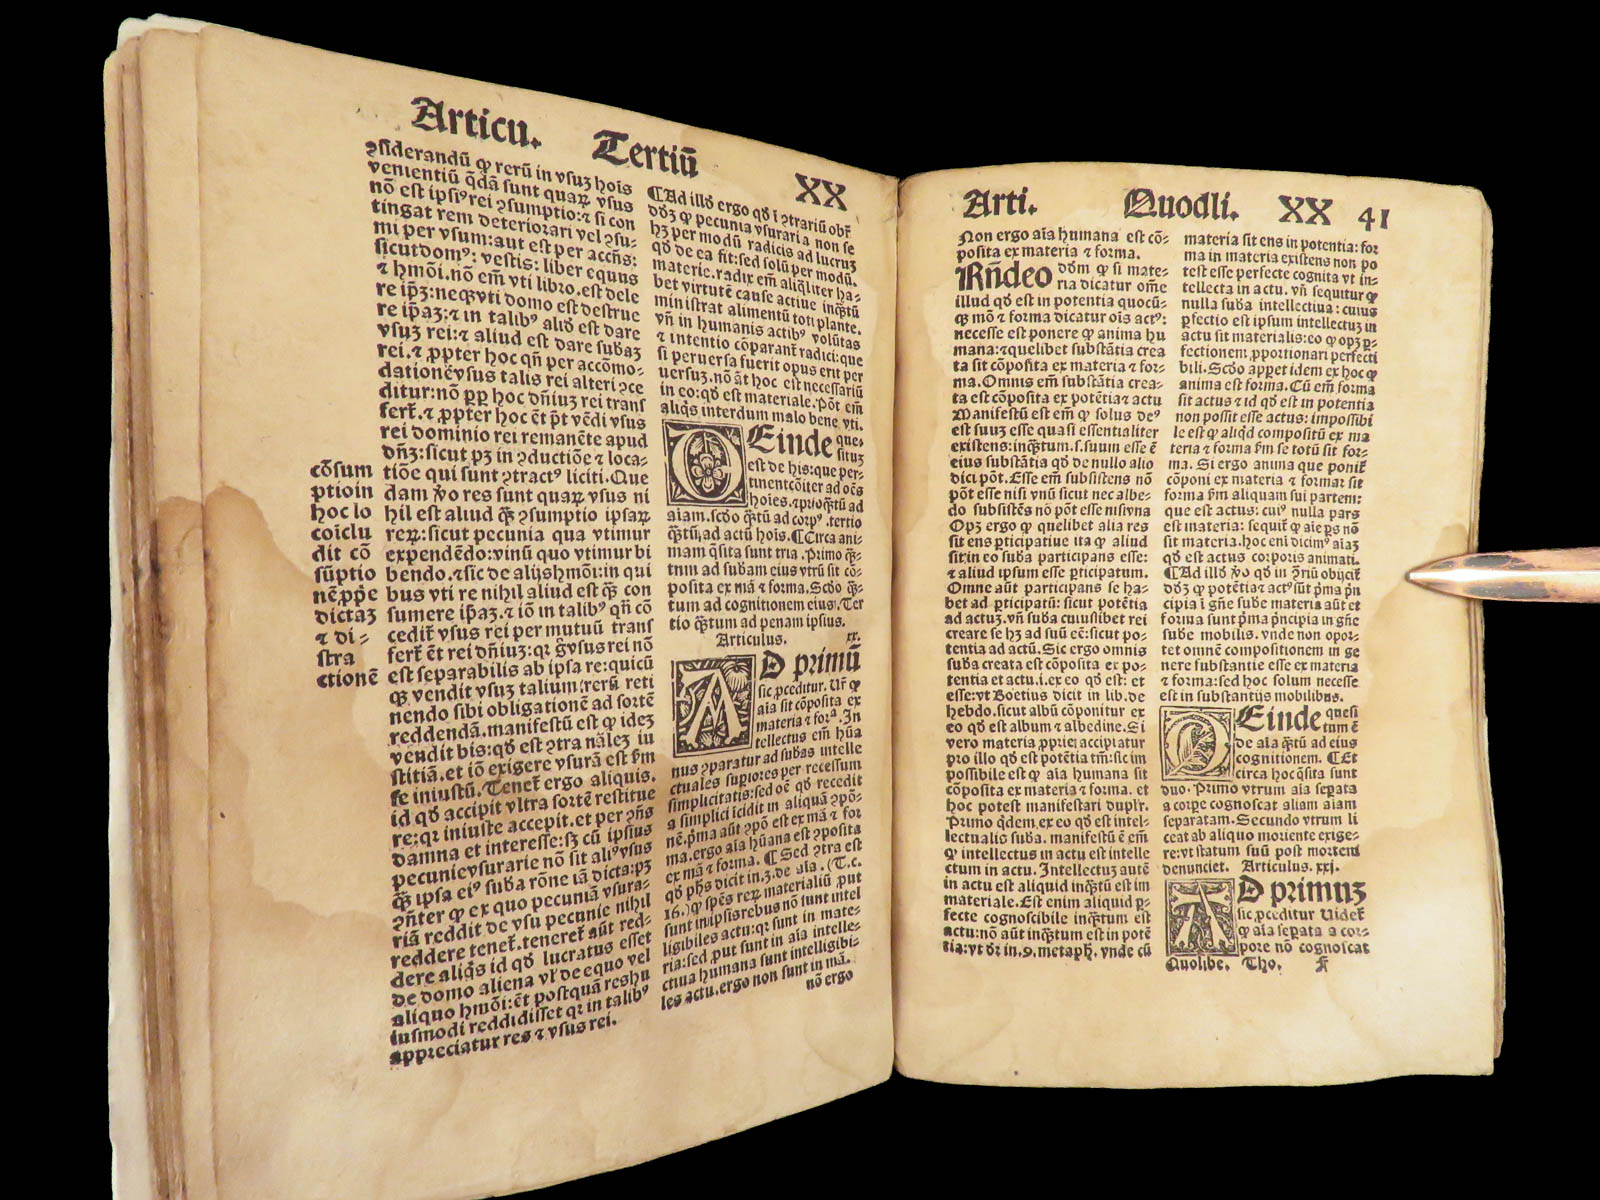 Articu. Tertiū XX
ꝯsiderandū ꝙ rerū in vsuꝫ hoīs
venientiū q̄dā sunt quaꝝ vsus
nō est ipsiꝰ rei ꝯsumptio: ⁊ si con
tingat rem deteriorari vel ꝯsu-
mi per vsum: aut est per accn̄s:
sicut domꝰ: vestis: liber equus
⁊ hmōi. nō em̄ vti libro. est dele
re ip̄ꝫ: neqꝫ vti domo est destrue
re ip̄aꝫ: ⁊ in talibꝰ aliđ est dare
vsuꝫ rei: ⁊ aliud est dare subaꝫ
rei. ⁊ ꝓpter hoc qn̄ per accōmo-
dationē vsus talis rei alteri ꝯce
ditur: nō ꝓp̄ hoc dn̄iuꝫ rei trans
fert̄. ⁊ ꝓpter hoc ēt p̄t vēdi vsus
rei dominio rei remanēte apud
dn̄ꝫ: sicut pꝫ in ꝯductiōe ⁊ loca-
tiōe qui sunt ꝯtractꝰ liciti. Que
dam v̊o res sunt quaꝝ vsus ni
hil est aliud q̄ꝫ ꝯsumptio ipsaꝝ
reꝝ: sicut pecunia qua vtimur
expendēdo: vinū quo vtimur bi
bendo. ⁊ sic de alijs hmōi: in qui
bus vti re nihil aliud est q̄ꝫ con
sumere ip̄aꝫ. ⁊ iō in talibꝰ qn̄ cō
cedit̄ vsus rei per mutuū trans
fert̄ ēt rei dn̄iuꝫ: qr ḡ vsus rei nō
est separabilis ab ipsa re: quicū
qꝫ vendit vsuꝫ talium rerū reti
nendo sibi obligationē ad sortē
reddendā. manifestū est ꝙ ideꝫ
vendit bis: qđ est ꝯtra nālēꝫ iu
stitiā. et iō exigere vsurā est ẜm
se iniustū. Tenet̄ ergo aliquis.
id qđ accipit vltra sortē restitue
re: qr iniuste accepit. et per ꝯn̄s
damna et interesse: sꝫ cū ipsius
pecunie vsurarie nō sit aliꝰ vsus
q̄ꝫ ipsa eiꝰ suba rōne iā dicta: pꝫ
ꝯn̄ter ꝙ ex quo pecuniā vsura-
riā reddit de vsu pecunie nihil
reddere tenet̄. teneret̄ aūt red-
dere aliq̄s id qđ lucratus esset
de domo aliena vl̓ de equo vel
aliquo hmōi: ēt postquā res hu
iusmodi reddidisset qr in talibꝰ
appreciatur res ⁊ vsus rei.
cōsum
ptio in
hoc lo
co īclu
dit cō
sūptio
nē ꝓpe
dictaꝫ
⁊ di-
stra
ctionē
¶Ad illđ ergo qđ ī ꝯtrariū obr̄
dꝫ ꝙ pecunia vsuraria non se
hꝫ per modū radicis ad lucruꝫ
qđ de ea fit: sed solū per modū.
materie. radix em̄ aliq̄liter ha-
bet virtutē cause actiue inq̄tū
ministrat alimentū toti plante.
vn̄ in humanis actibꝰ volūtas
⁊ intentio cōparant̄ radici: que
si peruersa fuerit opus erit per
uersuꝫ. nō āt hoc est necessariū
in eo: qđ est materiale. Pōt em̄
aliq̄s interdum malo bene vti.
DEinde que-
situꝫ
est de his: que per-
tinent cōiter ad oēs
hoies. ⁊ prio q̄tū ad
aīam. scđo q̄tū ad corpꝰ. tertio
q̄tū, ad actū hoīs. ¶Circa ani-
mam q̄sita sunt tria. Primo q̄-
tum ad subam eius vtrū sit cō-
posita ex mā ⁊ forma. Scđo q̄-
tum ad cognitionem eius. Ter
tio q̄tum ad penam ipsius.
Articulus. xx.
AD primū
sic ꝓceditur. Ur̄ ꝙ
aīa sit cōposita ex
materia ⁊ forᵃ. In
tellectus em̄ hūa
nus ꝯparatur ad subas intelle
ctuales supiores per recessum
simplicitatis: sed oē qđ recedit
a simplici icidit in aliquā ꝯpō-
nē. p̄ma aūt ꝯpō est ex mā ⁊ for
ma. ergo aīa hūana est ꝯposita
ex mā ⁊ forma. ¶Sed ꝯtra est
qđ phs dicit in. 3. de aīa. (T. c.
16.) ꝙ spēs reꝝ materialiū ꝓut
sunt in ipsis rebus nō sunt intel
ligibiles actu: qr sunt in mate-
ria: sed ꝓut sunt in aīa intelligibi-
ctiua humana sunt intelligibi-
les actu. ergo non sunt in mā.
nō ergo
Arti. Quodli. XX 41
Non ergo aīa humana est cō-
posita ex materia ⁊ forma.
Rn̄deo dꝫm ꝙ si mate-
ria dicatur om̄e
illud qđ est in potentia quocū-
qꝫ mō ⁊ forma dicatur oīs actꝰ:
necesse est ponere ꝙ anima hu
mana: ⁊ quelibet substātia crea
ta sit cōposita ex materia ⁊ for-
ma. Omnis em̄ substātia crea-
ta est cōposita ex potētia ⁊ actu
Manifestū est em̄ ꝙ solus deꝰ
est suuꝫ esse quasi essentialiter
existens: inq̄tum. s. suum esse ē
eius substātia qđ de nullo alio
dici pōt. Esse em̄ subsistens nō
pōt esse nisi vnū sicut nec albe-
do subsistēs nō pōt esse nisi vna
Opꝫ ergo ꝙ quelibet alia res
sit ens ꝑticipatiue ita ꝙ aliud
sit in eo suba participans esse:
⁊ aliud ipsum esse ꝑticipatum.
Omne aūt participans se ha-
bet ad ꝑticipatū: sicut potētia
ad actuꝫ. vn̄ suba cuiuslibet rei
create se hꝫ ad suū eē: sicut po-
tentia ad actū. Sic ergo omnis
suba creata est cōposita ex po-
tentia et actu. i. ex eo qđ est: et
esse: vt Boetius dicit in lib. de
hebdo. sicut albū cōponitur ex
eo qđ est album ⁊ albedine. Si
vero materia ꝓprie accipiatur
pro illo qđ est potētia tm̄: sic im
possibile est ꝙ aīa humana sit
cōposita ex materia ⁊ forma. et
hoc potest manifestari dupl̓r.
Primo q̄dem. ex eo qđ est intel-
lectualis suba. manifestū ē em̄
ꝙ intellectus in actu est intelle
ctum in actu. Intellectuꝫ autē
in actu est aliquid inq̄tū est im
materiale. Est enim aliquid ꝑ-
fecte cognoscibile inq̄tum est
actu: nō aūt inq̄tum est in potē
tia: vt dr̄ in. 9. metaph. vnde cū
materia sit ens in potentia: for
ma in materia existens non po
test esse perfecte cognita vt in-
tellecta in actu. vn̄ sequitur ꝙ
nulla suba intellectiua: cuius
ꝑfectio est ipsum intellectuꝫ in
actu sit materialis: eo ꝙ opꝫ ꝑ-
fectionem ꝓportionari perfecti
bili. Scđo apꝑet idem ex hoc ꝙ
anima est forma. Cū em̄ forma
sit actus ⁊ id qđ est in potentia
non possit esse actus: impossibi
le est ꝙ aliqđ compositū ex ma
teria ⁊ forma ẜm se totū sit for-
ma. Si ergo anima que ponit̄
cōponi ex materia ⁊ formar̄ sit
forma ẜm aliquam sui partem:
que est actus: cuiꝰ nulla pars
est materia: sequit̄ ꝙ aīe ps nō
sit materia. hoc eni dicimꝰ aīaꝫ
qđ est actus corporis animati.
¶Ad illđ v̊o qđ in ꝯriū obijcit̄
dꝫ ꝙ potētia ⁊ actꝰ sūt p̄ma p̄n
cipia ī gn̄e sube materia aūt et
forma sunt p̄ma p̄ncipia in gn̄e
sube mobilis. vnde non opor-
tet omnē compositionem in ge
nere substantie esse ex materia
⁊ forma: sed hoc solum necesse
est in substantijs mobilibus.
DEinde quesi
tum ē
de aīa q̄tū ad eius
cognitionem. ¶Et
circa hoc q̄sita sunt
duo. Primo vtrum aīa sepata
a corpe cognoscat aliam aīam
separatam. Secundo vtrum li
ceat ab aliquo moriente exige-
re: vt statum suū post mortem
denunciet. Articulus. xxj.
AD primuꝫ
sic ꝓceditur Uidet̄
ꝙ aīa sepata a cor-
pore nō cognoscat
Quolibe. Tho. F